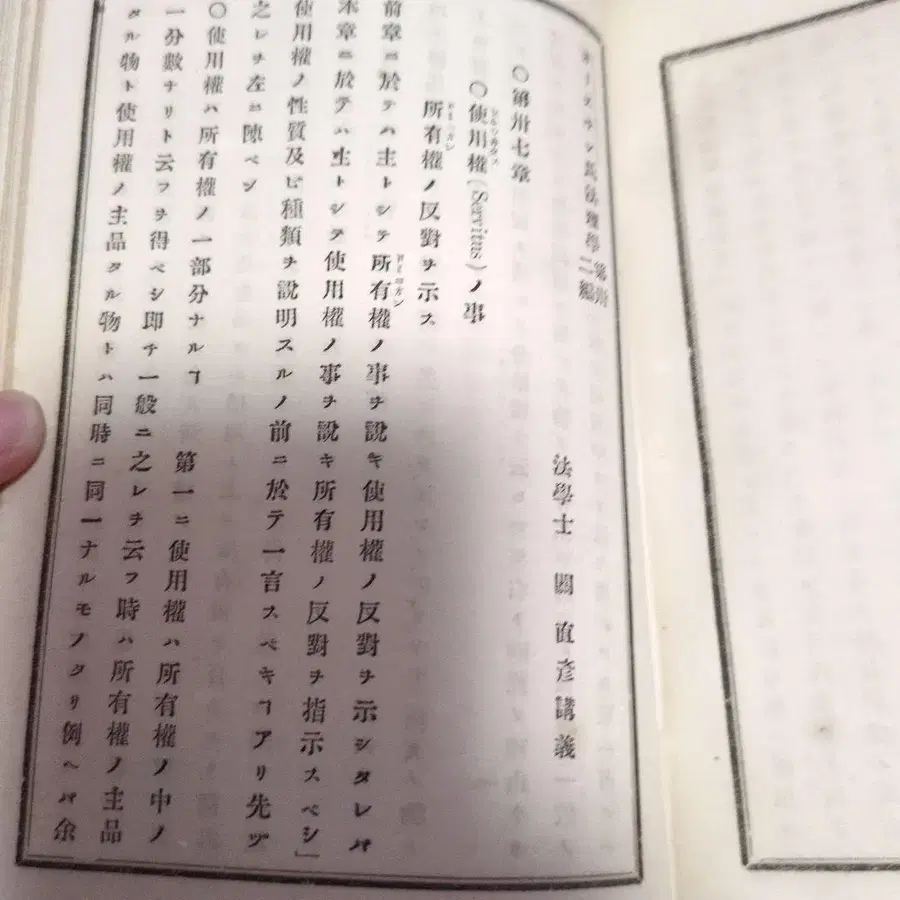 オースチン氏法理學第卅二編
法學士 關直彥講義
○第卅七章
○使用權(Servitus)ノ事
所有權ノ反對ヲ示ス
前章ニ於テハ主トシテ所有權ノ事ヲ說キ使用權ノ反對ヲ示シタレバ
本章ニ於テハ主トシテ使用權ノ事ヲ說キ所有權ノ反對ヲ指示スベシ」
使用權ノ性質及ビ種類ヲ說明スルノ前ニ於テ一言スベキヿアリ先ヅ
之レヲ左ニ陳ベン
○使用權ハ所有權ノ一部分ナルヿ 第一ニ使用權ハ所有權ノ中ノ
一分數ナリト云フヲ得ベシ卽チ一般ニ之レヲ云フ時ハ所有權ノ主品
タル物ト使用權ノ主品タル物トハ同時ニ同一ナルモノタリ例ヘバ余